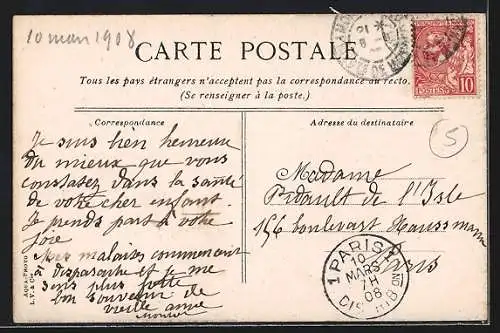 10 mars 1908
CARTE POSTALE
Tous les pays étrangers n'acceptent pas la correspondance au recto.
(Se renseigner à la poste.)
Correspondance
Adresse du destinataire
Je suis bien heureuse
du mieux que vous
constatez dans la santé
de votre cher enfant.
Je prends part à votre
joie
Mes malaises commencent
à disparaitre et je me
sens plus forte
bon souvenir de
vieille amie
Madame
de l'Isle
156 boulevard Haussmann
Paris
5
10
1 PARIS 1
10
MARS
7H
08
DISTRIB ND
AQUA-PHOTO
L.V. & Cie